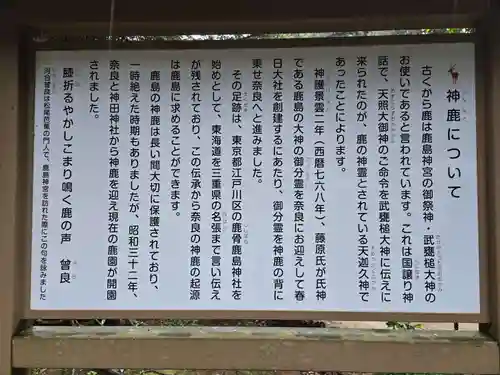 神鹿について
古くから鹿は鹿島神宮の御祭神・武甕槌大神の
お使いであると言われています。これは国譲り神
話で、天照大御神のご命令を武甕槌大神に伝えに
来られたのが、鹿の神霊とされている天迦久神で
あったことによります。
神護景雲二年（西暦七六八年）、藤原氏が氏神
である鹿島の大神の御分霊を奈良にお迎えして春
日大社を創建するにあたり、御分霊を神鹿の背に
乗せ奈良へと進みました。
その足跡は、東京都江戸川区の鹿骨鹿島神社を
始めとして、東海道を三重県の名張まで言い伝え
が残されており、この伝承から奈良の神鹿の起源
は鹿島に求めることができます。
鹿島の神鹿は長い間大切に保護されており、
一時絶えた時期もありましたが、昭和三十二年、
奈良と神田神社から神鹿を迎え現在の鹿園が開園
されました。
膝折るやかしこまり鳴く鹿の声　曾良
河合曾良は松尾芭蕉の門人で、鹿島神宮を訪れた際にこの句を詠みました